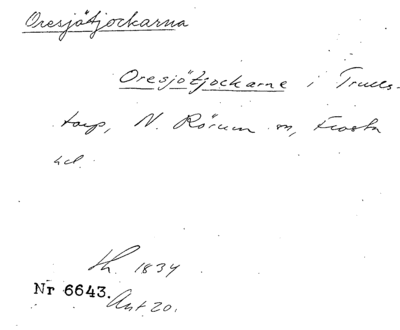 Oresjötjockarna
Oresjötjockarne i Truls-
torp, N. Rörum sn, Frosta
hd.
Lh. 1834
Nr 6643.
Ant 20.